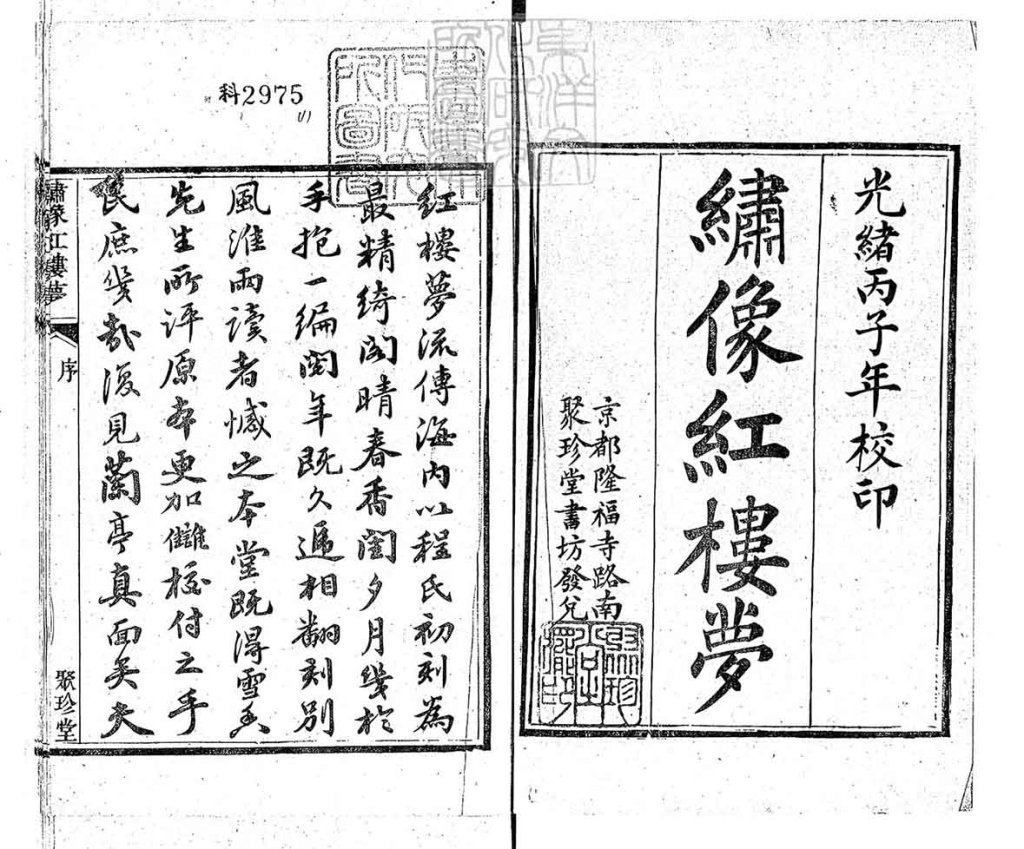 光緒丙子年校印
繡像紅樓夢
京都隆福寺路南
聚珍堂書坊發兌
科2975
紅樓夢流傳海內以程氏初刻為
最精綺閣晴春香閨夕月幾於
手抱一編閱年既久遞相翻刻別
風淮雨讀者憾之本堂既得雪香
先生所評原本更加讎校付之手
民庶幾哉復見蘭亭真面矣夫
繡像紅樓夢
序
聚珍堂